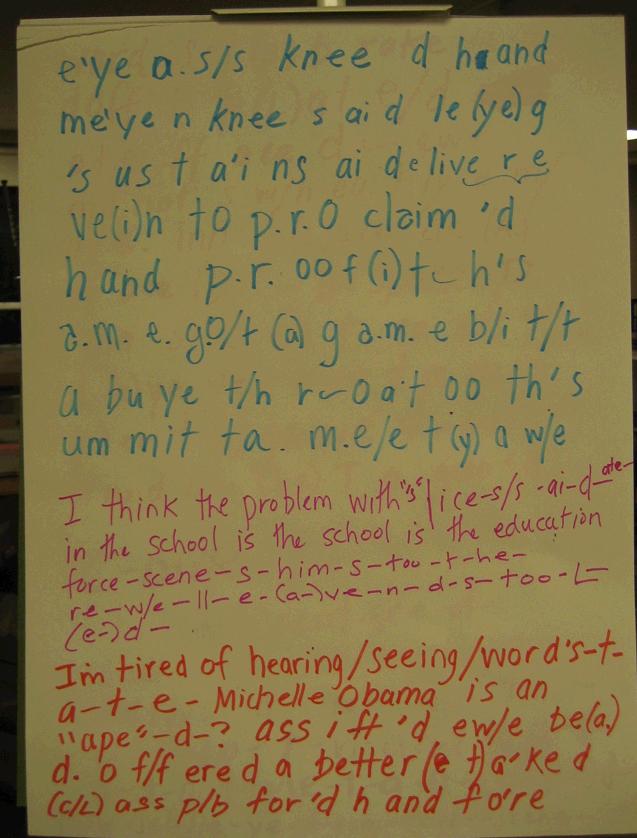 e'ye a.s/s knee d hand
me'ye n knee s ai d le(ye)g
's us t a'i ns ai delive r e
ve(i)n to p.r.o claim 'd
h and p.r. oo f(i)t~ h's
a.m. e. go/t (a) g a.m. e b/i t/t
a bu ye t/h r~o a't oo th's
um mit ta. m.e/e t (y) a w/e
I think the problem with "s" lice-s/s -ai-d-ate-
in the school is the school is the education
force-scene-s-him-s-too-t-he-
re-w/e-ll-e-(a-)ve-n-d-s-too-L-
(e-)d-
I'm tired of hearing/seeing/word's-t-
a-t-e- Michelle Obama is an
"ape"-d-? ass i ft 'd ew/e be(a.)
d. o f/f ered a better(e t)a'ke d
(c/L) ass p/b for'd h and fo're